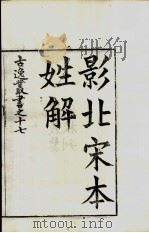 影北宋本
姓解
古逸叢書之十七